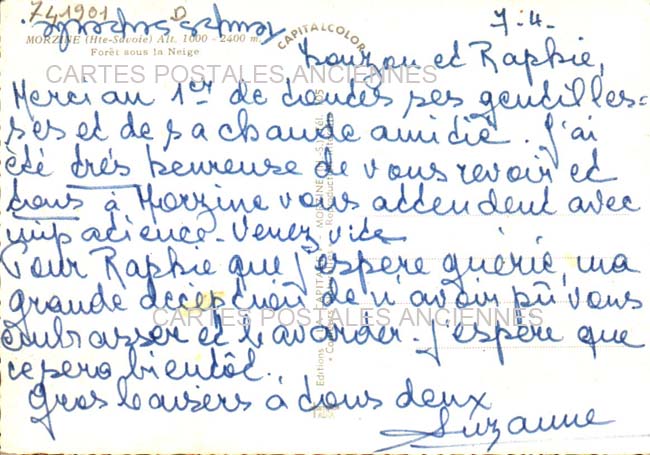 741901 D
7.4.
Temps superbe.
MORZINE (Hte-Savoie) Alt. 1000 - 2400 m.
Forêt sous la Neige
CAPITALCOLOR
et Raphie,
CARTES POSTALES ANCIENNES
Merci au 1er de toutes ses gentilles=
ses et de sa chaude amitié. J'ai
été très heureuse de vous revoir et
tous à Morzine vous attendent avec
impatience. Venez vite
Pour Raphie que j'espère guérie, ma
grande déception de n'avoir pû vous
embrasser et bavarder. j'espère que
CARTES POSTALES ANCIENNES
ce sera bientôt.
Gros baisers à tous deux
Suzanne